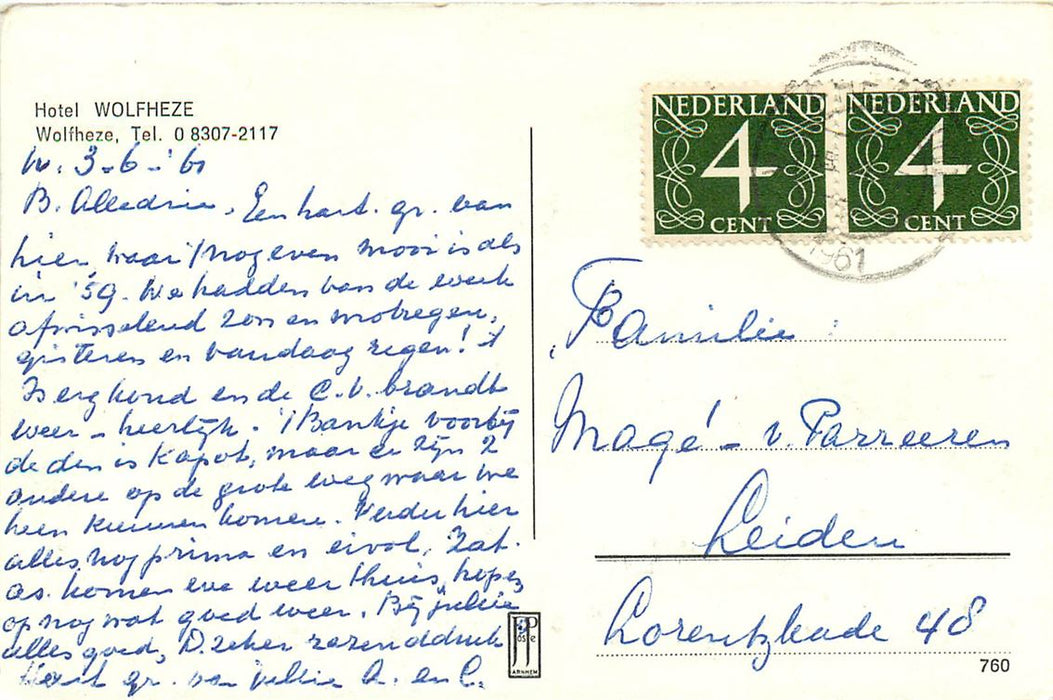 Hotel WOLFHEZE
Wolfheze, Tel. 0 8307-2117
W. 3-6-'61
B. Alledrie, Een hart. gr. van
hier, waar 't nog even mooi is als
in '59. We hadden van de week
afwisselend zon en motregen,
gisteren en vandaag regen! 't
Is erg koud en de C.V. brandt
weer - heerlijk. 't Bankje voorbij
de den is kapot, maar er zijn 2
andere op de grote weg waar we
heen kunnen komen. Verder hier
alles nog prima en Zat.
as. komen we weer thuis, hopen
op nog wat goed weer. Bij jullie
alles goed, D. zeker razend druk
Hart. gr. van jullie A. en C.
NEDERLAND
4
CENT
NEDERLAND
4
CENT
1961
Familie
Magé - v. Parreeren
Leiden
Lorentzkade 48
JP
oste
ARNHEM
760